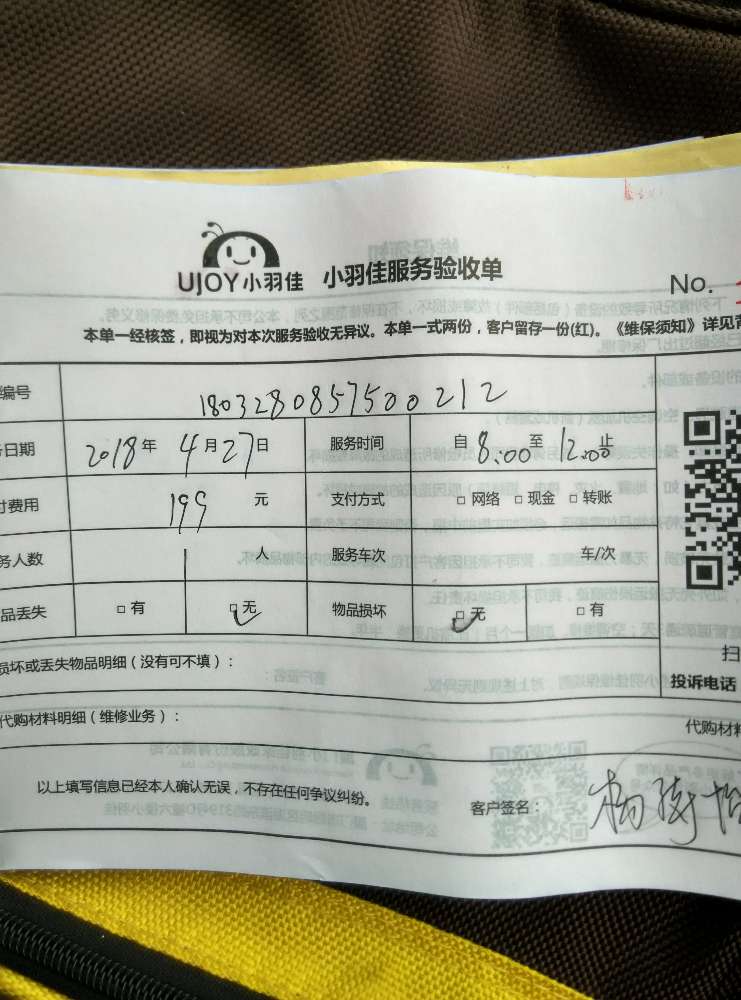 UJOY小羽佳 小羽佳服务验收单
No.
本单一经核签，即视为对本次服务验收无异议。本单一式两份，客户留存一份(红)。《维保须知》详见背
编号 1803280857500212
日期 2018年4月27日 服务时间 自8:00至12:00止
付费用 199元 支付方式 □网络 □现金 □转账
务人数 1人 服务车次 车/次
品丢失 □有 □无 物品损坏 □无 □有
损坏或丢失物品明细（没有可不填）：
扫
投诉电话
代购材料明细（维修业务）：
代购材料
以上填写信息已经本人确认无误，不存在任何争议纠纷。
客户签名：